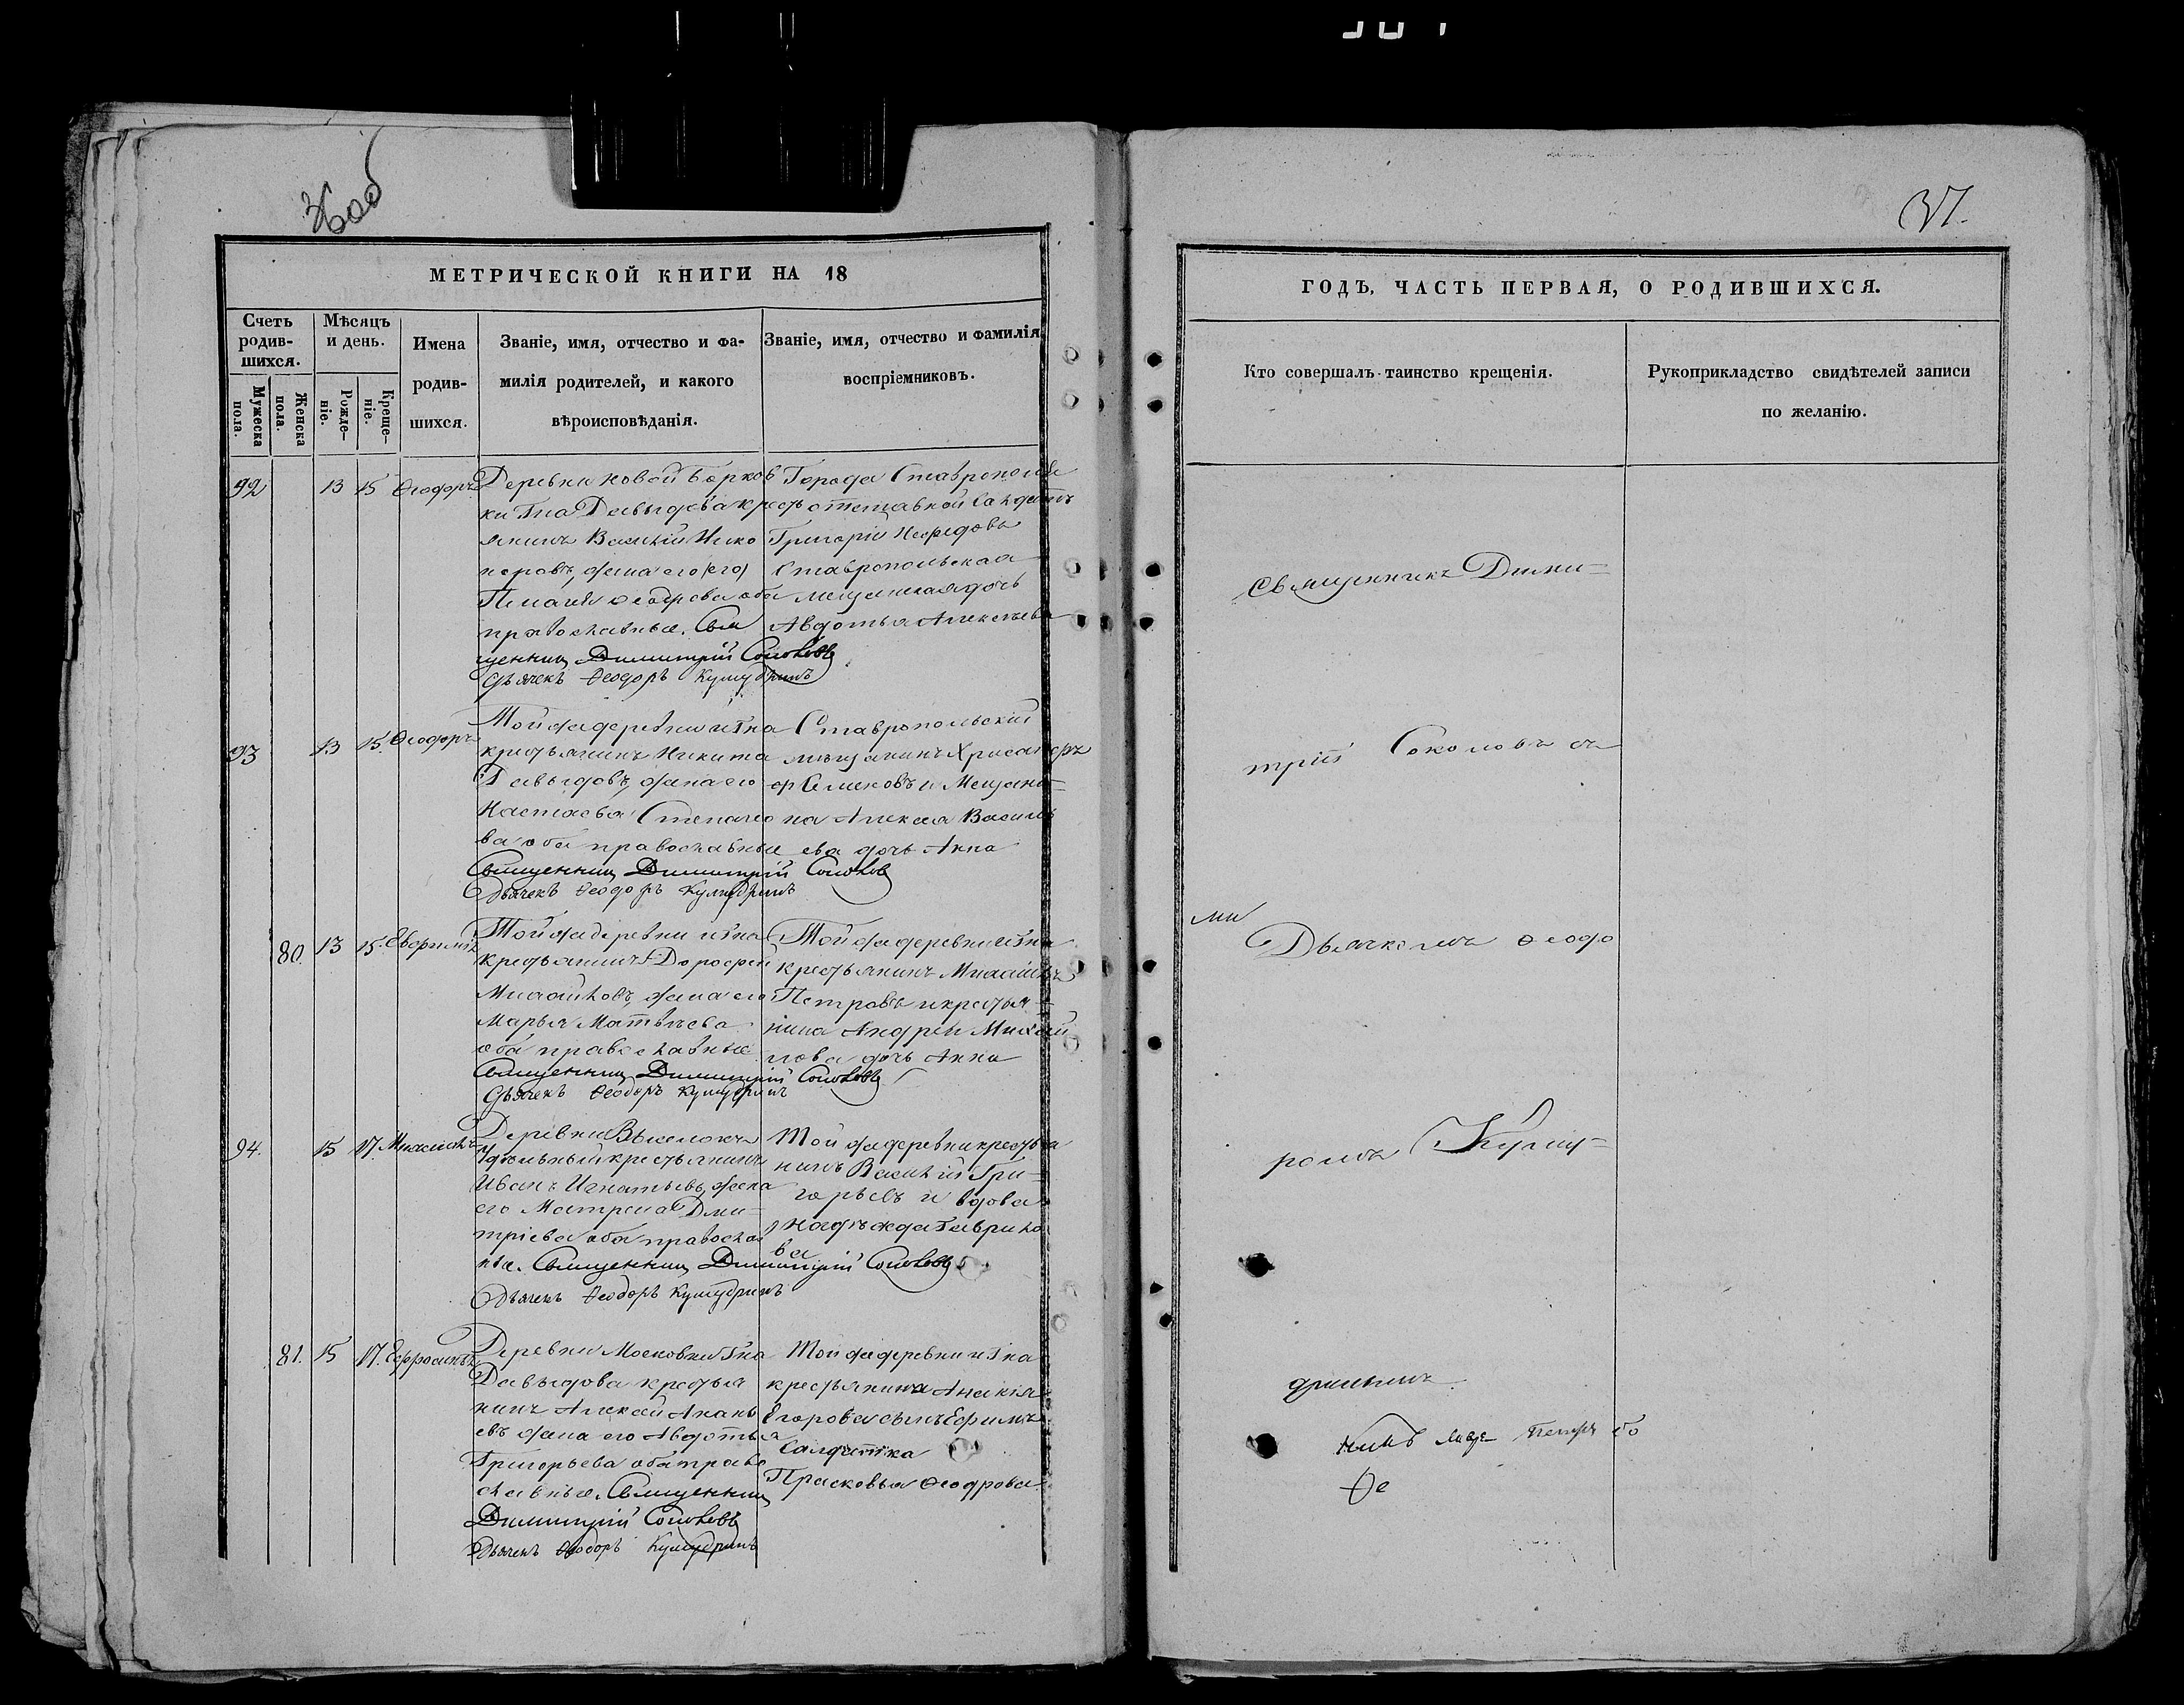 36об
37.
МЕТРИЧЕСКОЙ КНИГИ НА 18
Счетъ родив-шихся.
Мужеска пола.
Женска пола.
Мѣсяцъ и день.
Рожде-ніе.
Креще-ніе.
Имена
родив-
шихся.
Званіе, имя, отчество и фа-
милія родителей, и какого
вѣроисповѣданія.
Званіе, имя, отчество и фамилія
воспріемниковъ.
92 13 15 Ѳеодоръ
Деревни Новой Борков
ки Гна Давыдова крес
янинъ Василій Ники
форовъ, жена его
Ѳеодрова оба
православные. Свя
щенникъ Димитрій Соколовъ
Дьячекъ Ѳеодоръ Кулиудринъ
Города Ставрополя
отставной Салдатъ
Григорій Нефедовъ
Ставропольская
мещанская дочь
Авдотья Алексѣева
93 13 15. Ѳеодоръ
Той же деревни и Гна
крестьянинъ Никита
Давыдовъ, жена его
Настасья Степано
ва оба православные
Священникъ Димитрій Соколов
Дьячекъ Ѳеодоръ Кулиудринъ
Ставропольскій
мѣщанинъ Хрисанфъ
Семеновъ и Мещани=
на Алексея Василь
ева дочь Анна
80. 13 15. Евфимія
Той же деревни и Гна
крестьянинъ Дорофей
Михайловъ, жена его
Марья Матвѣева
оба православные
Священникъ Димитрій Соколовъ
Дьячекъ Ѳеодоръ Кулиудринъ
Той же деревни и Гна
крестьянинъ Михайлъ
Петровъ и крестья=
нина Андрея Михай
лова дочь Анна
94. 15 17. Михаилъ
Деревни Выселокъ
Удѣльный крестьянинъ
Иванъ Игнатьевъ, жена
его Матрена Дми=
тріева оба правосла
ные. Священникъ Димитрій Соколовъ
Дьячекъ Ѳеодоръ Кулиудринъ
Той же деревни крестья
нинъ Василій Гри=
горьевъ и вдова
Надѣжда Гаврило
ва
81. 15 17. Ефросинья
Деревни Московки Гна
Давыдова крестья
нинъ Алексей Анань
евъ жена его Авдотья
Григорьева оба право
славные. Священникъ
Димитрій Соколовъ
Дьячекъ Ѳеодоръ Кулиудринъ
Той же деревни и Гна
крестьянина Ананія
Егорова сынъ Ефимъ
Салдатка
Прасковья Ѳеодрова
ГОДЪ, ЧАСТЬ ПЕРВАЯ, О РОДИВШИХСЯ.
Кто совершалъ таинство крещенія.
Рукоприкладство свидѣтелей записи
по желанію.
Священникъ Дими=
трій Соколовъ съ
Дьячкомъ Ѳеодо
ромъ Кулиу=
дринымъ.